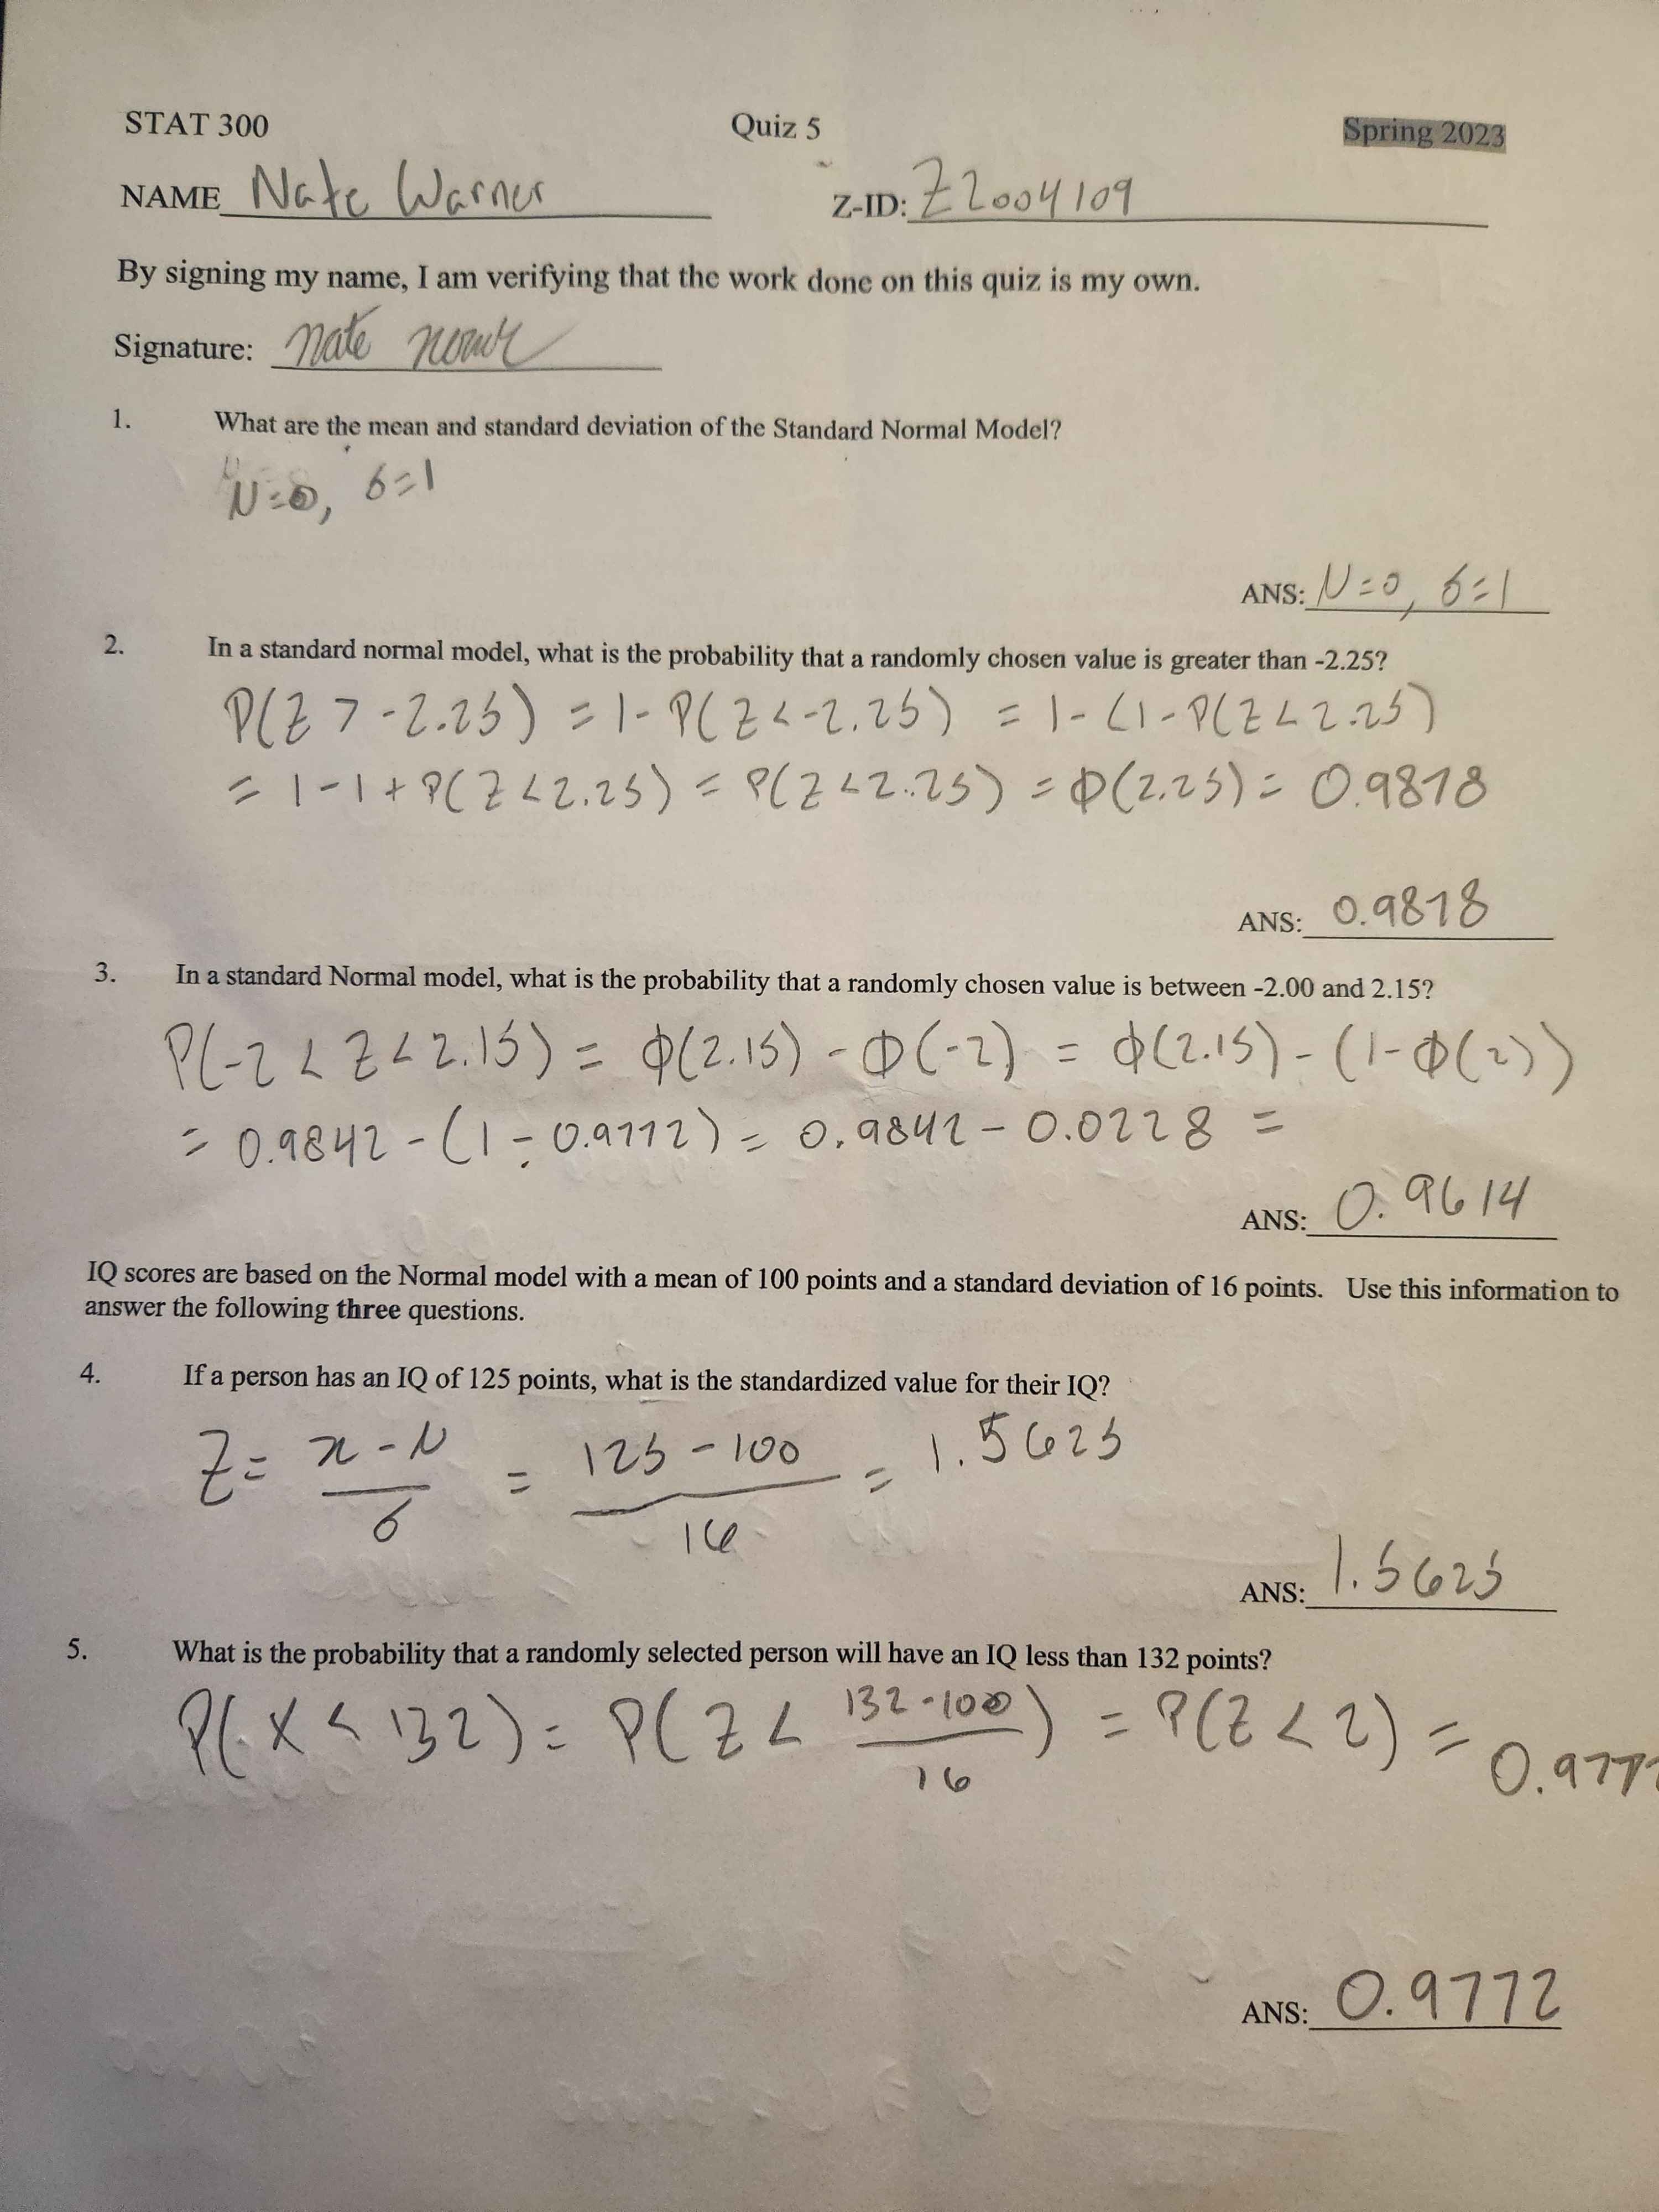 STAT 300 Quiz 5 Spring 2023
NAME Nate Warner Z-ID: Z2004109
By signing my name, I am verifying that the work done on this quiz is my own.
Signature: Nate
1. What are the mean and standard deviation of the Standard Normal Model?
μ=0, σ=1
ANS: μ=0, σ=1
2. In a standard normal model, what is the probability that a randomly chosen value is greater than -2.25?
P(Z > -2.25) = 1 - P(Z < -2.25) = 1 - (1 - P(Z < 2.25)
= 1 - 1 + P(Z < 2.25) = P(Z < 2.25) = Φ(2.25) = 0.9878
ANS: 0.9878
3. In a standard Normal model, what is the probability that a randomly chosen value is between -2.00 and 2.15?
P(-2 < Z < 2.15) = Φ(2.15) - Φ(-2) = Φ(2.15) - (1 - Φ(2))
= 0.9842 - (1 - 0.9772) = 0.9842 - 0.0228 =
ANS: 0.9614
IQ scores are based on the Normal model with a mean of 100 points and a standard deviation of 16 points. Use this information to
answer the following three questions.
4. If a person has an IQ of 125 points, what is the standardized value for their IQ?
Z = x - μ / σ = 125 - 100 / 16 = 1.5625
ANS: 1.5625
5. What is the probability that a randomly selected person will have an IQ less than 132 points?
P(X < 132) = P(Z < 132 - 100 / 16) = P(Z < 2) = 0.9772
ANS: 0.9772